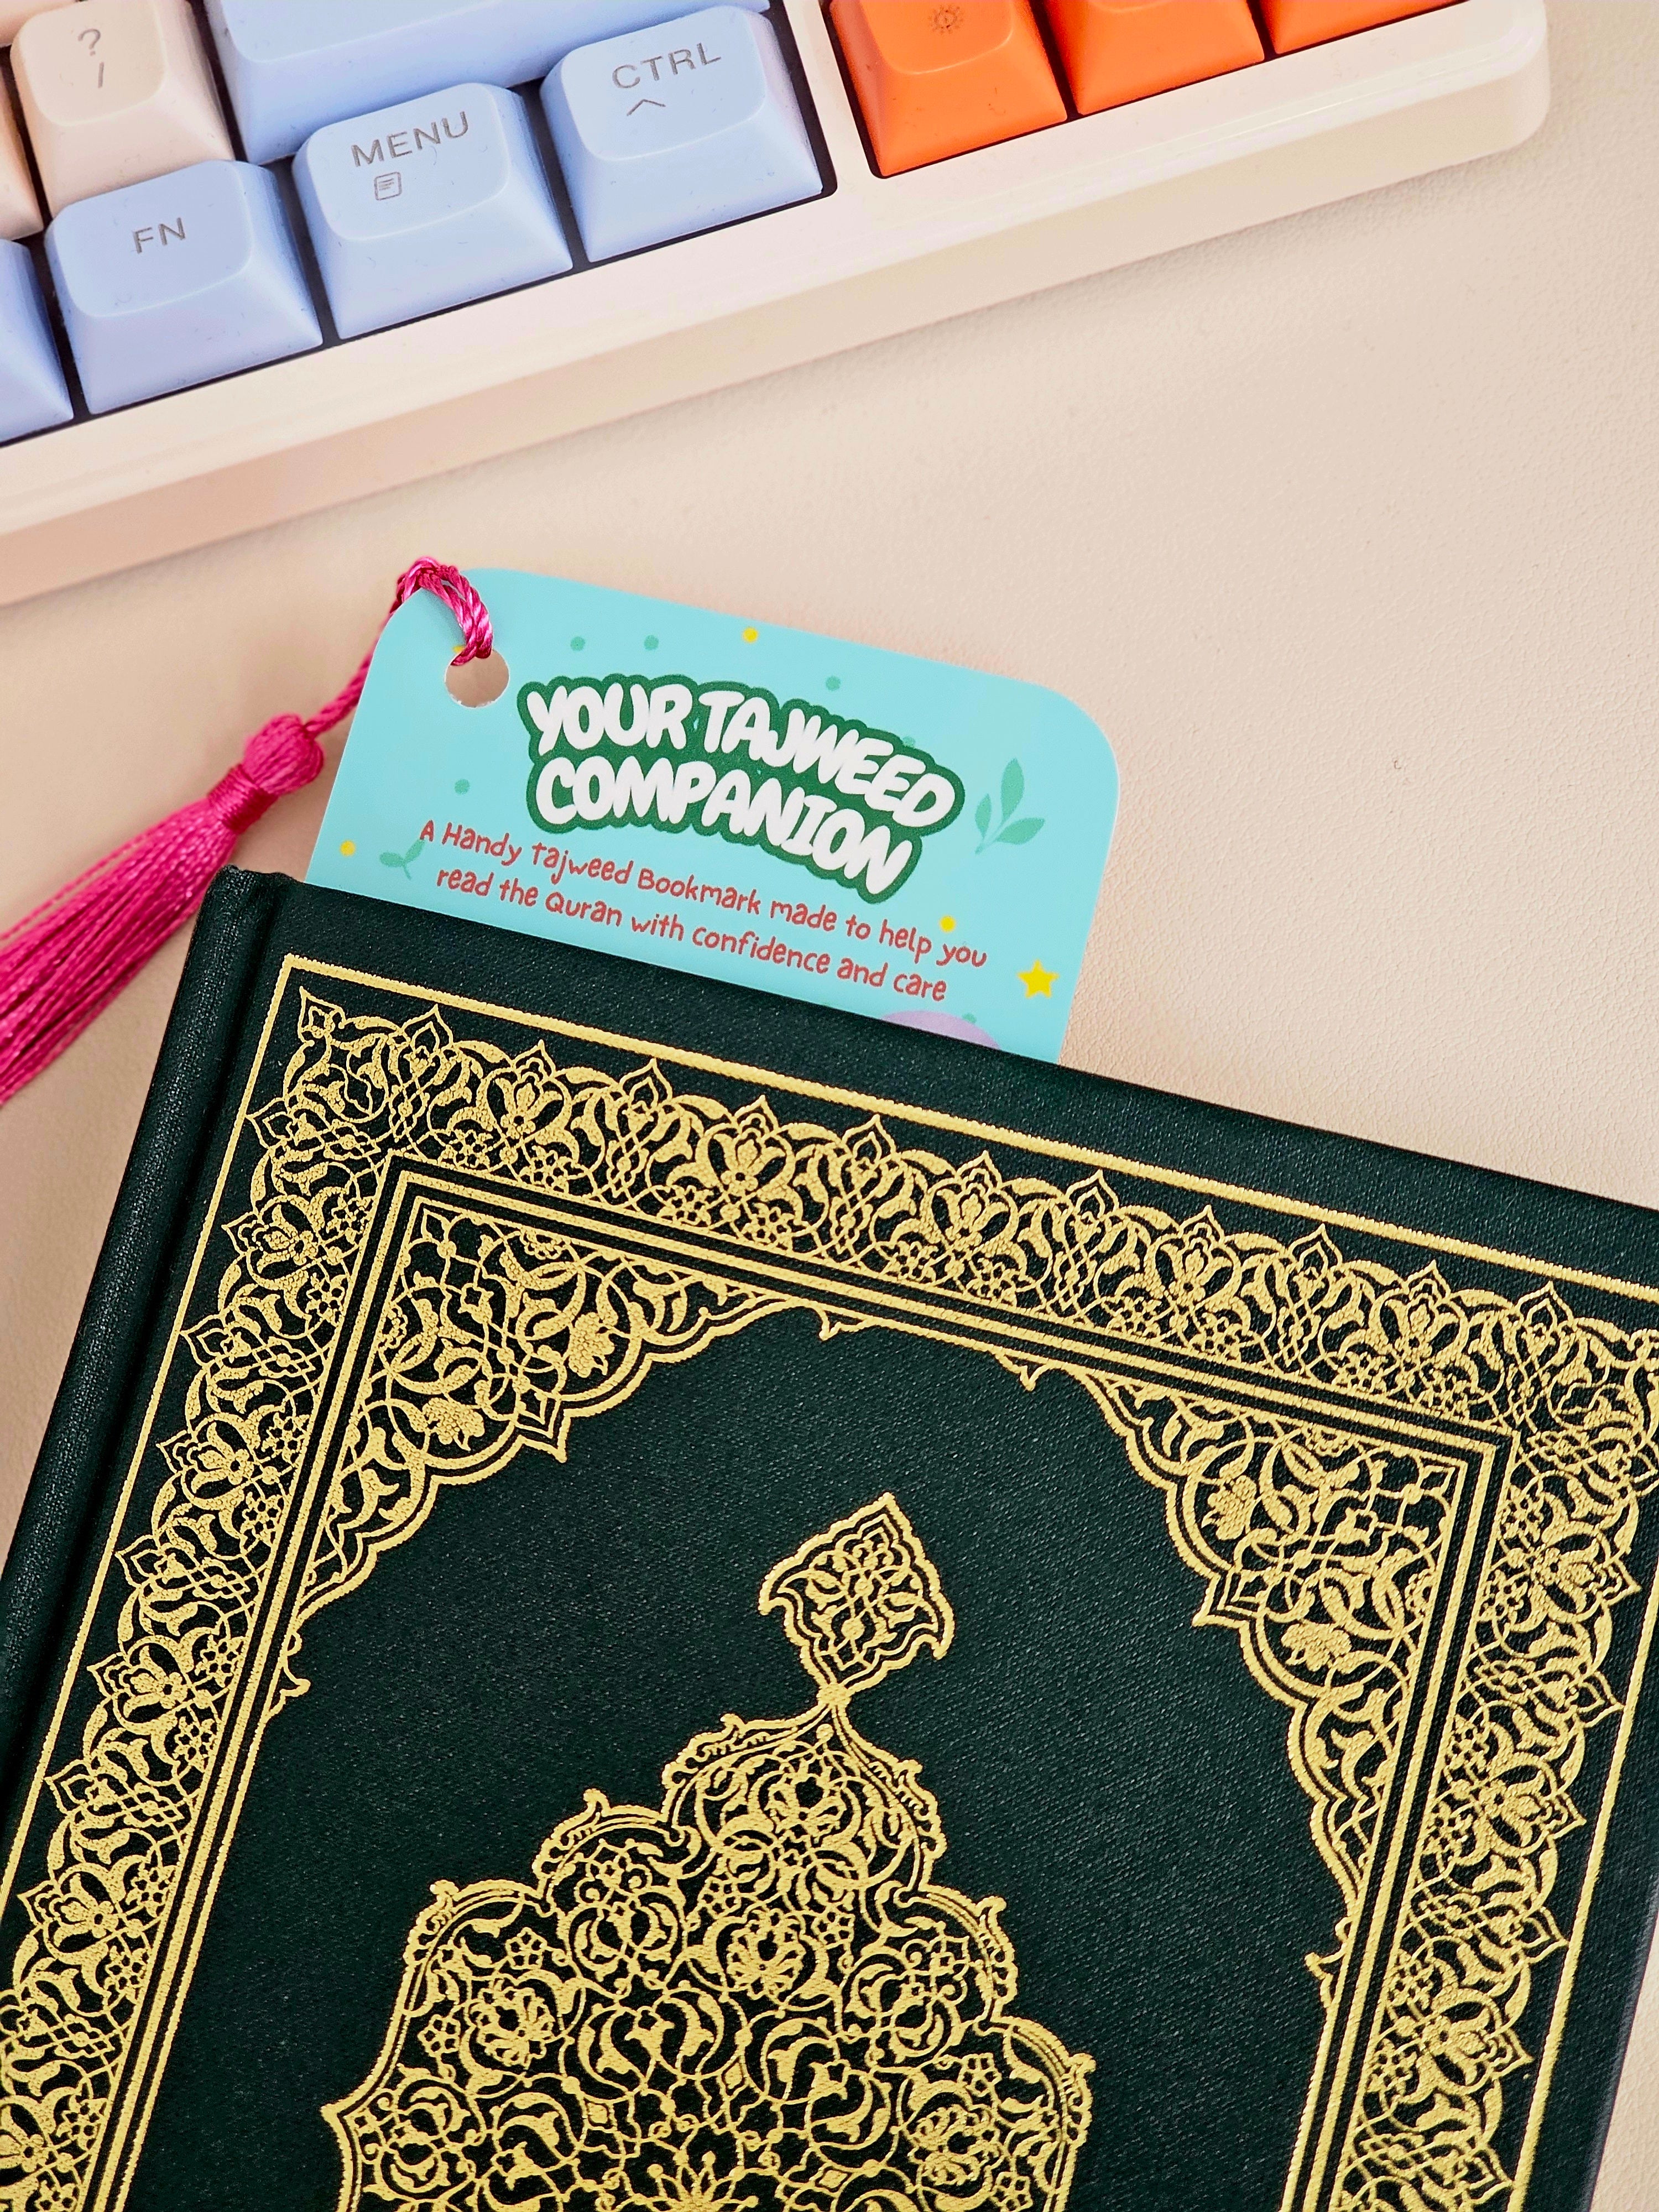 ?
/
MENU
CTRL
FN
YOUR TAJWEED
COMPANION
A Handy Tajweed Bookmark made to help you
read the Quran with confidence and care